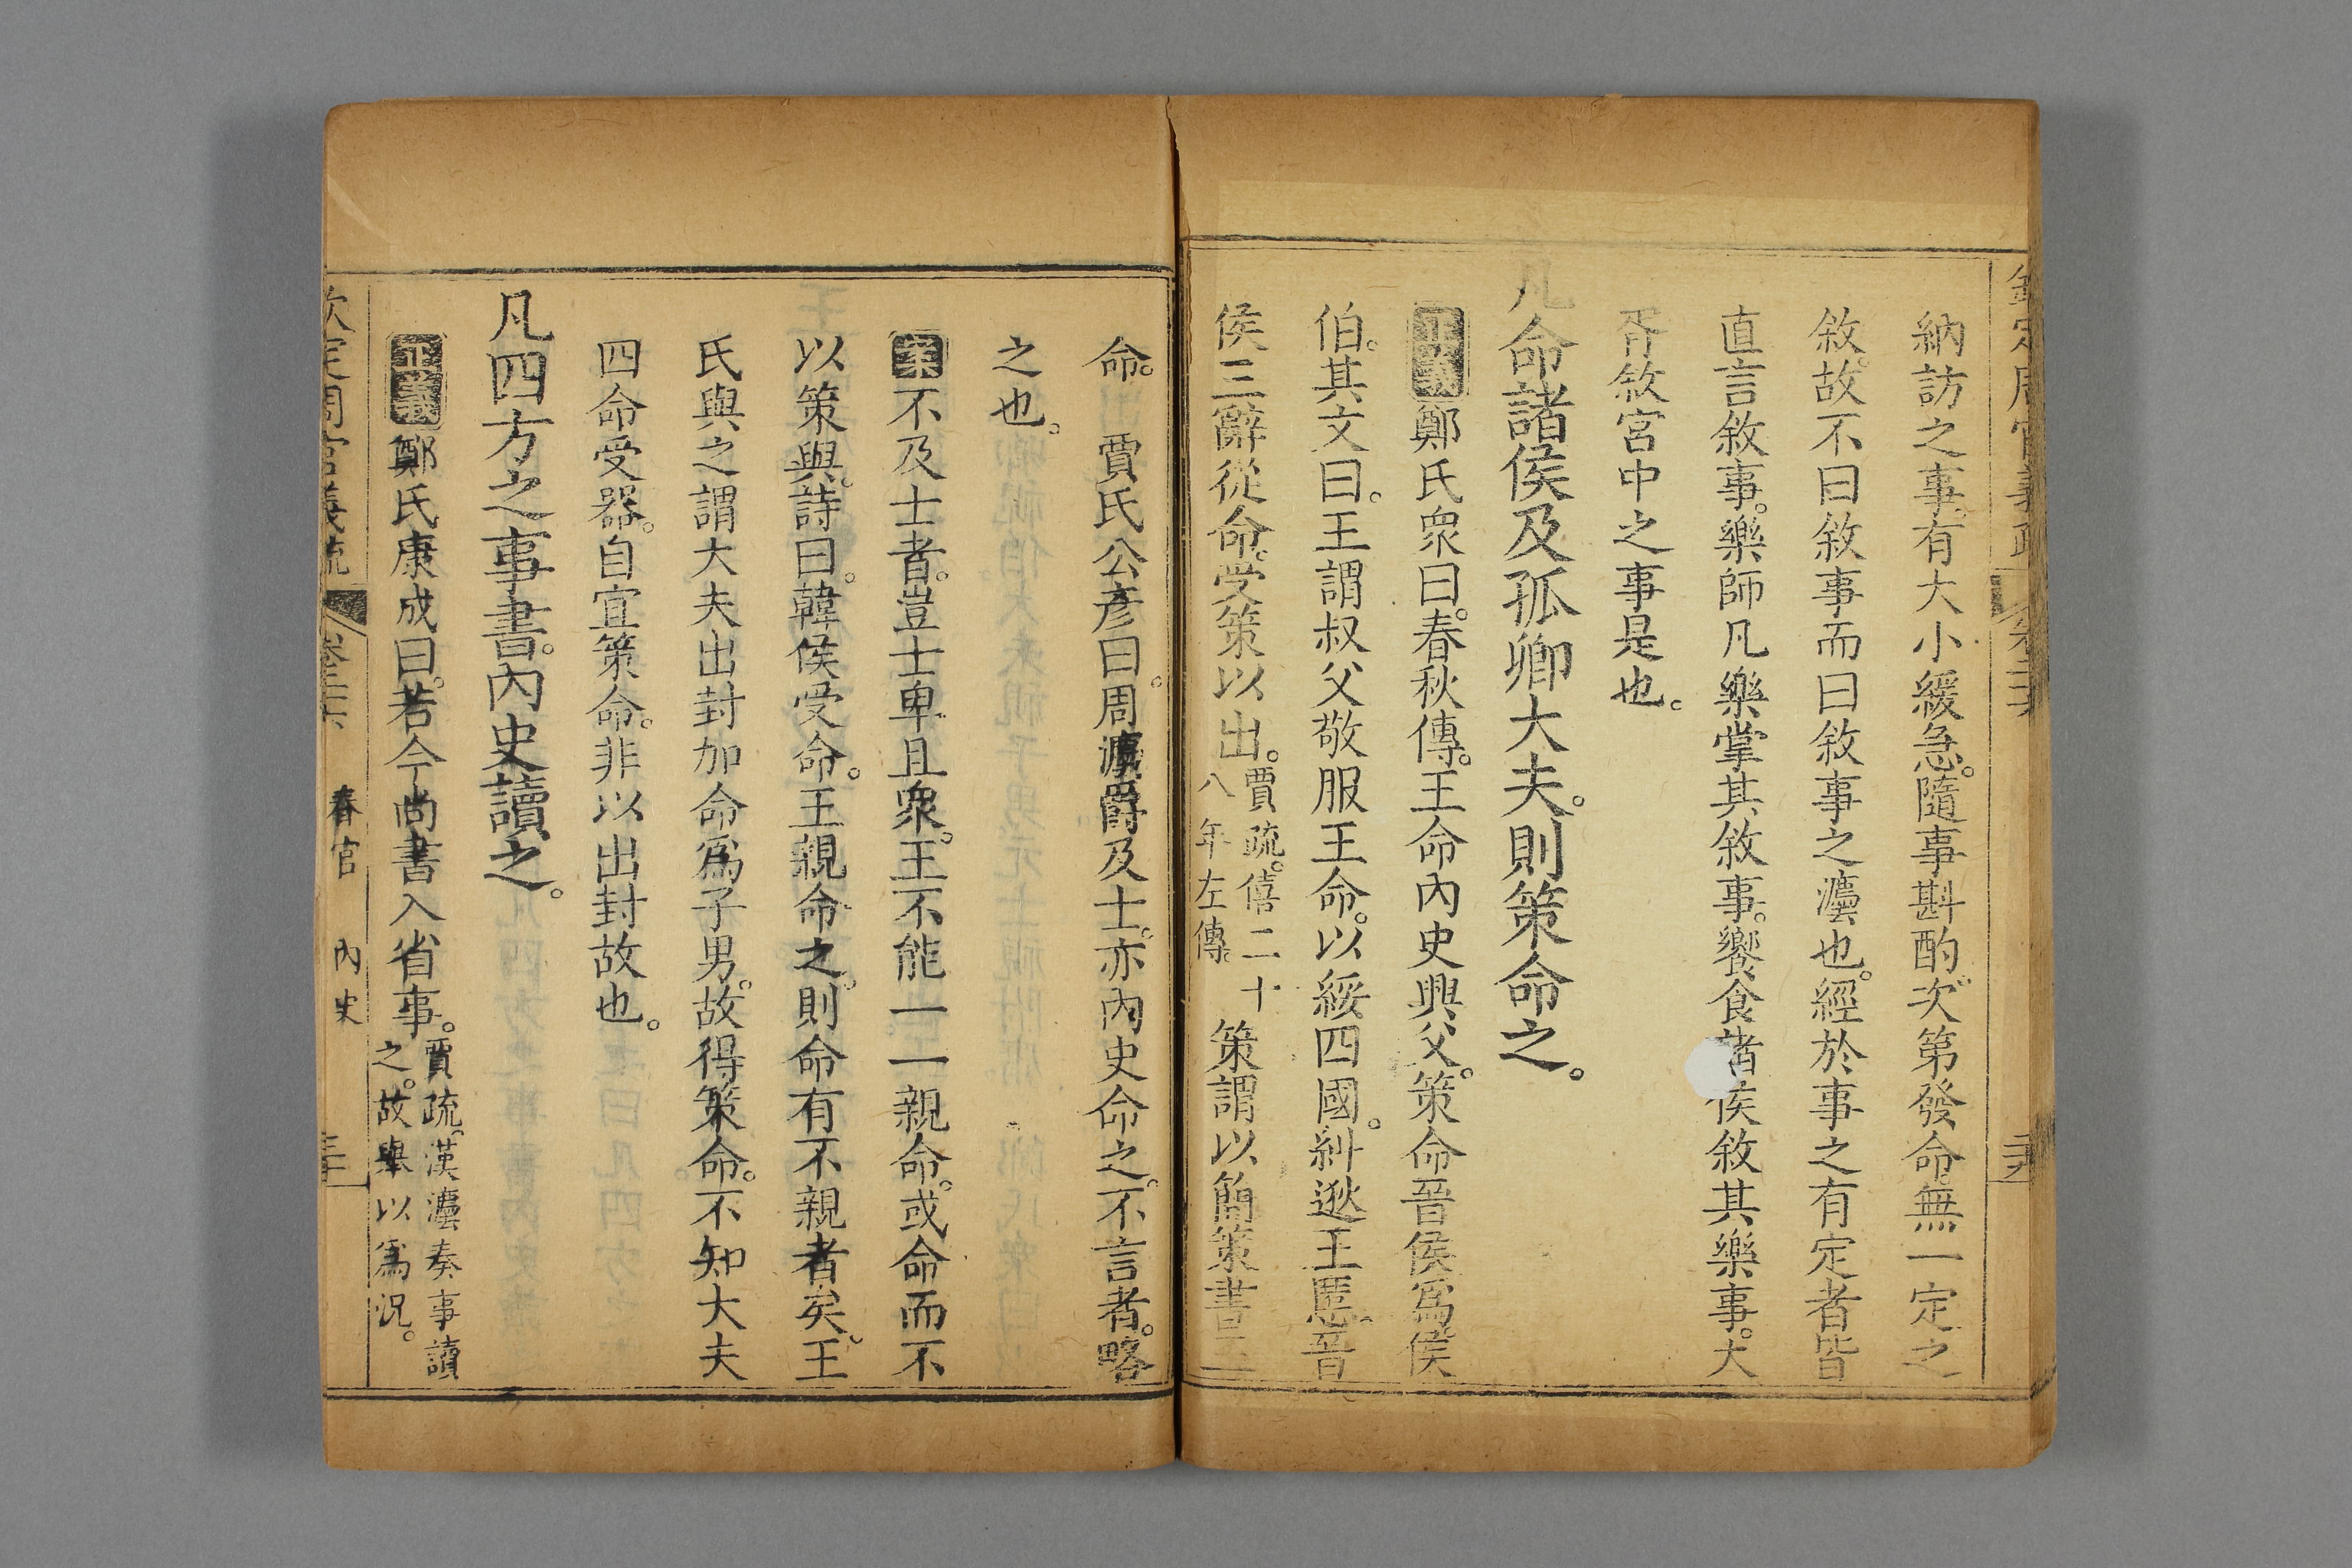 納訪之事。有大小緩急。隨事斟酌。次第發命。無一定之
敘。故不曰敘事而曰敘事之灋也。經於事之有定者皆
直言敘事。樂師凡樂掌其敘事。饗食諸侯敘其樂事。大
胥敘宮中之事是也。
凡命諸侯及孤卿大夫。則策命之。
正義鄭氏眾曰。春秋傳。王命內史興父。策命晉侯爲侯
伯。其文曰。王謂叔父敬服王命。以綏四國。糾逖王慝。晉
侯三辭從命。受策以出。賈疏。僖二十八年左傳。策謂以簡策書王
命。賈氏公彥曰。周灋爵及士。亦內史命之。不言者。略
之也。
案不及士者。豈士卑且眾。王不能一一親命。或命而不
以策與。詩曰。韓侯受命。王親命之。則命有不親者矣。王
氏與之謂大夫出封加命爲子男。故得策命。不知大夫
四命受器。自宜策命。非以出封故也。
凡四方之事書。內史讀之。
正義鄭氏康成曰。若今尚書入省事。賈疏。漢灋奏事讀之。故舉以爲況。
欽定周官義疏 卷二十六 春官 內史